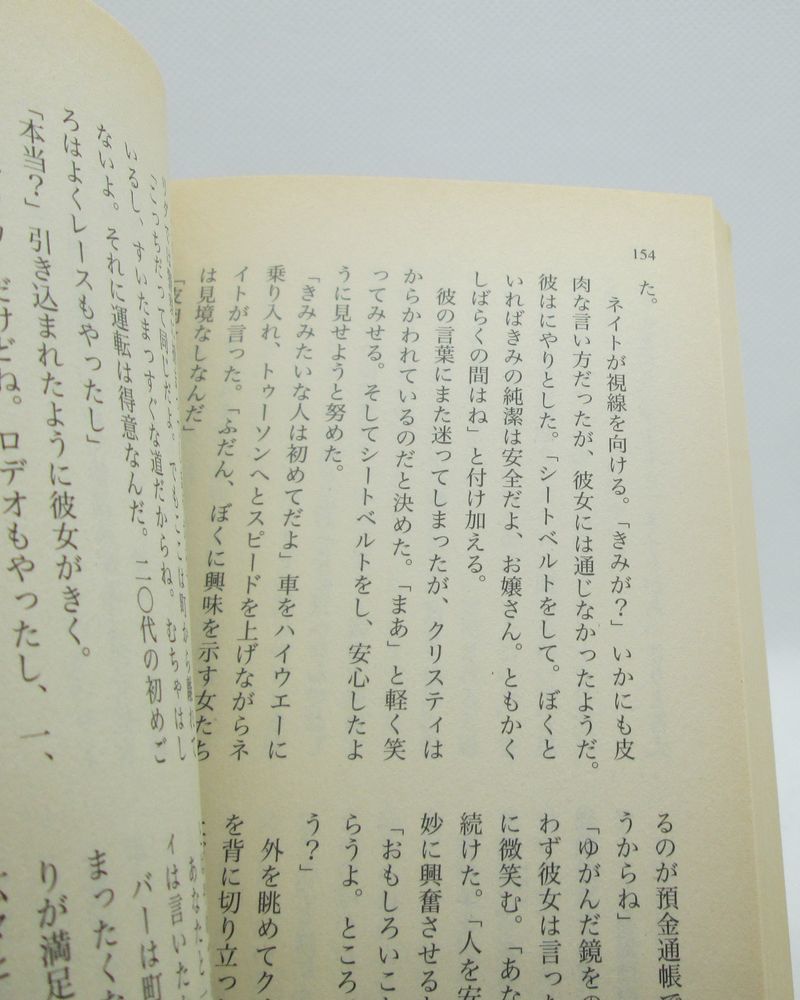 154
た。
ネイトが視線を向ける。「きみが？」いかにも皮
肉な言い方だったが、彼女には通じなかったようだ。
彼はにやりとした。「シートベルトをして。ぼくと
いればきみの純潔は安全だよ、お嬢さん。ともかく
しばらくの間はね」と付け加える。
彼の言葉にまた迷ってしまったが、クリスティは
からかわれているのだと決めた。「まあ」と軽く笑
ってみせる。そしてシートベルトをし、安心したよ
うに見せようと努めた。
「きみみたいな人は初めてだよ」車をハイウエーに
乗り入れ、トゥーソンへとスピードを上げながらネ
イトが言った。「ふだん、ぼくに興味を示す女たち
は見境なしなんだ」
るのが預金通帳で
うからね」
「ゆがんだ鏡をの
わず彼女は言った
に微笑む。「あな
続けた。「人を安
妙に興奮させると
「おもしろいこと
らうよ。ところ
う？」
外を眺めてク
を背に切り立つ
いるし、すいたまっすぐな道だからね。むちゃはし
ないよ。それに運転は得意なんだ。二〇代の初めご
ろはよくレースもやったし」
「本当？」引き込まれたように彼女がきく。
だけどね。ロデオもやったし、一、
イは言いた
バーは町
まったくな
りが満足